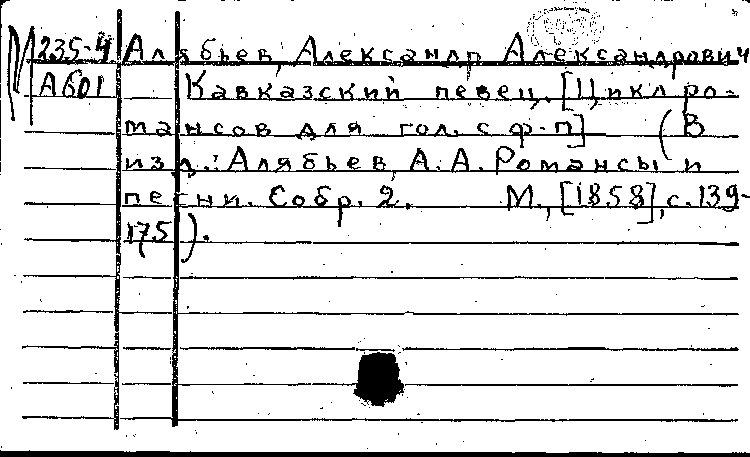 М 235-4 Алябьев, Александр Александрович
А601 Кавказский певец. [Цикл ро-
мансов для гол. с ф-п] (В
изд.: Алябьев, А. А. Романсы и
песни. Собр. 2. М., [1858], с. 139-
175).